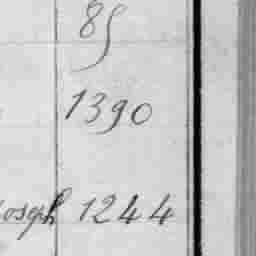 85
1390
oseph 1244